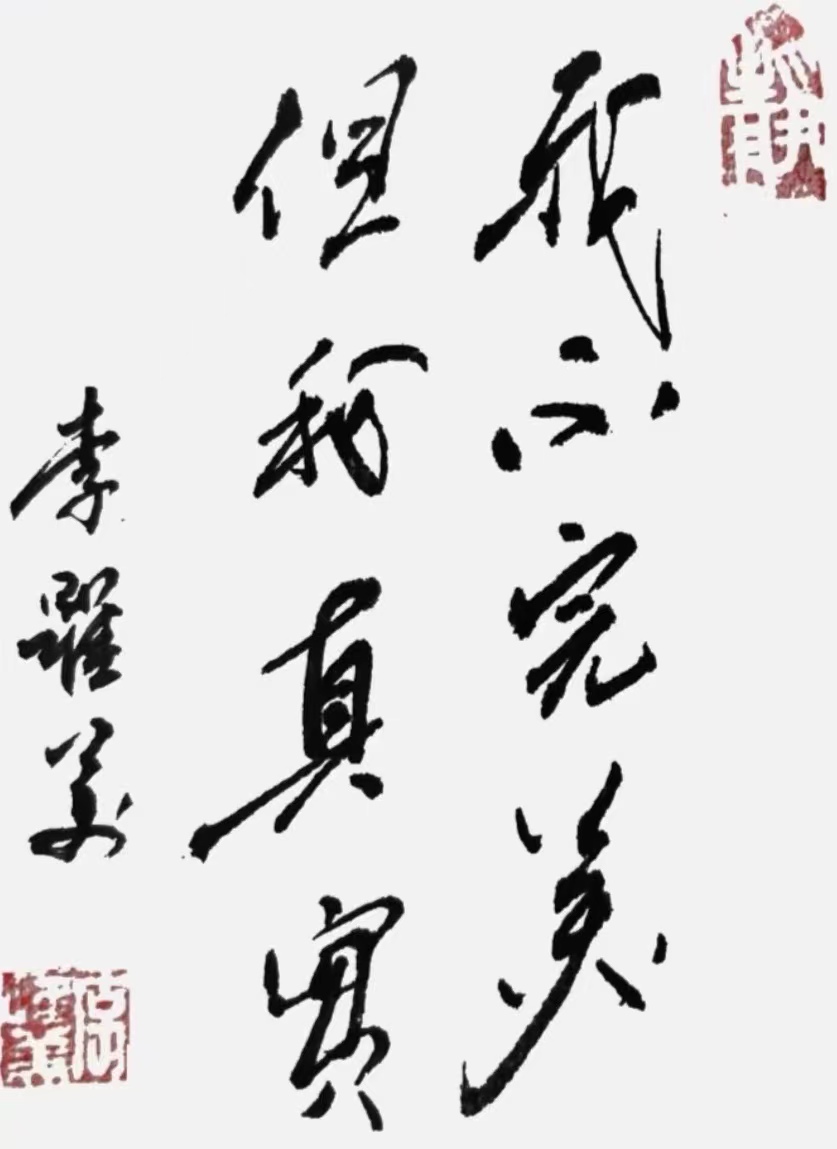 我不完美
但我真實
李躍美